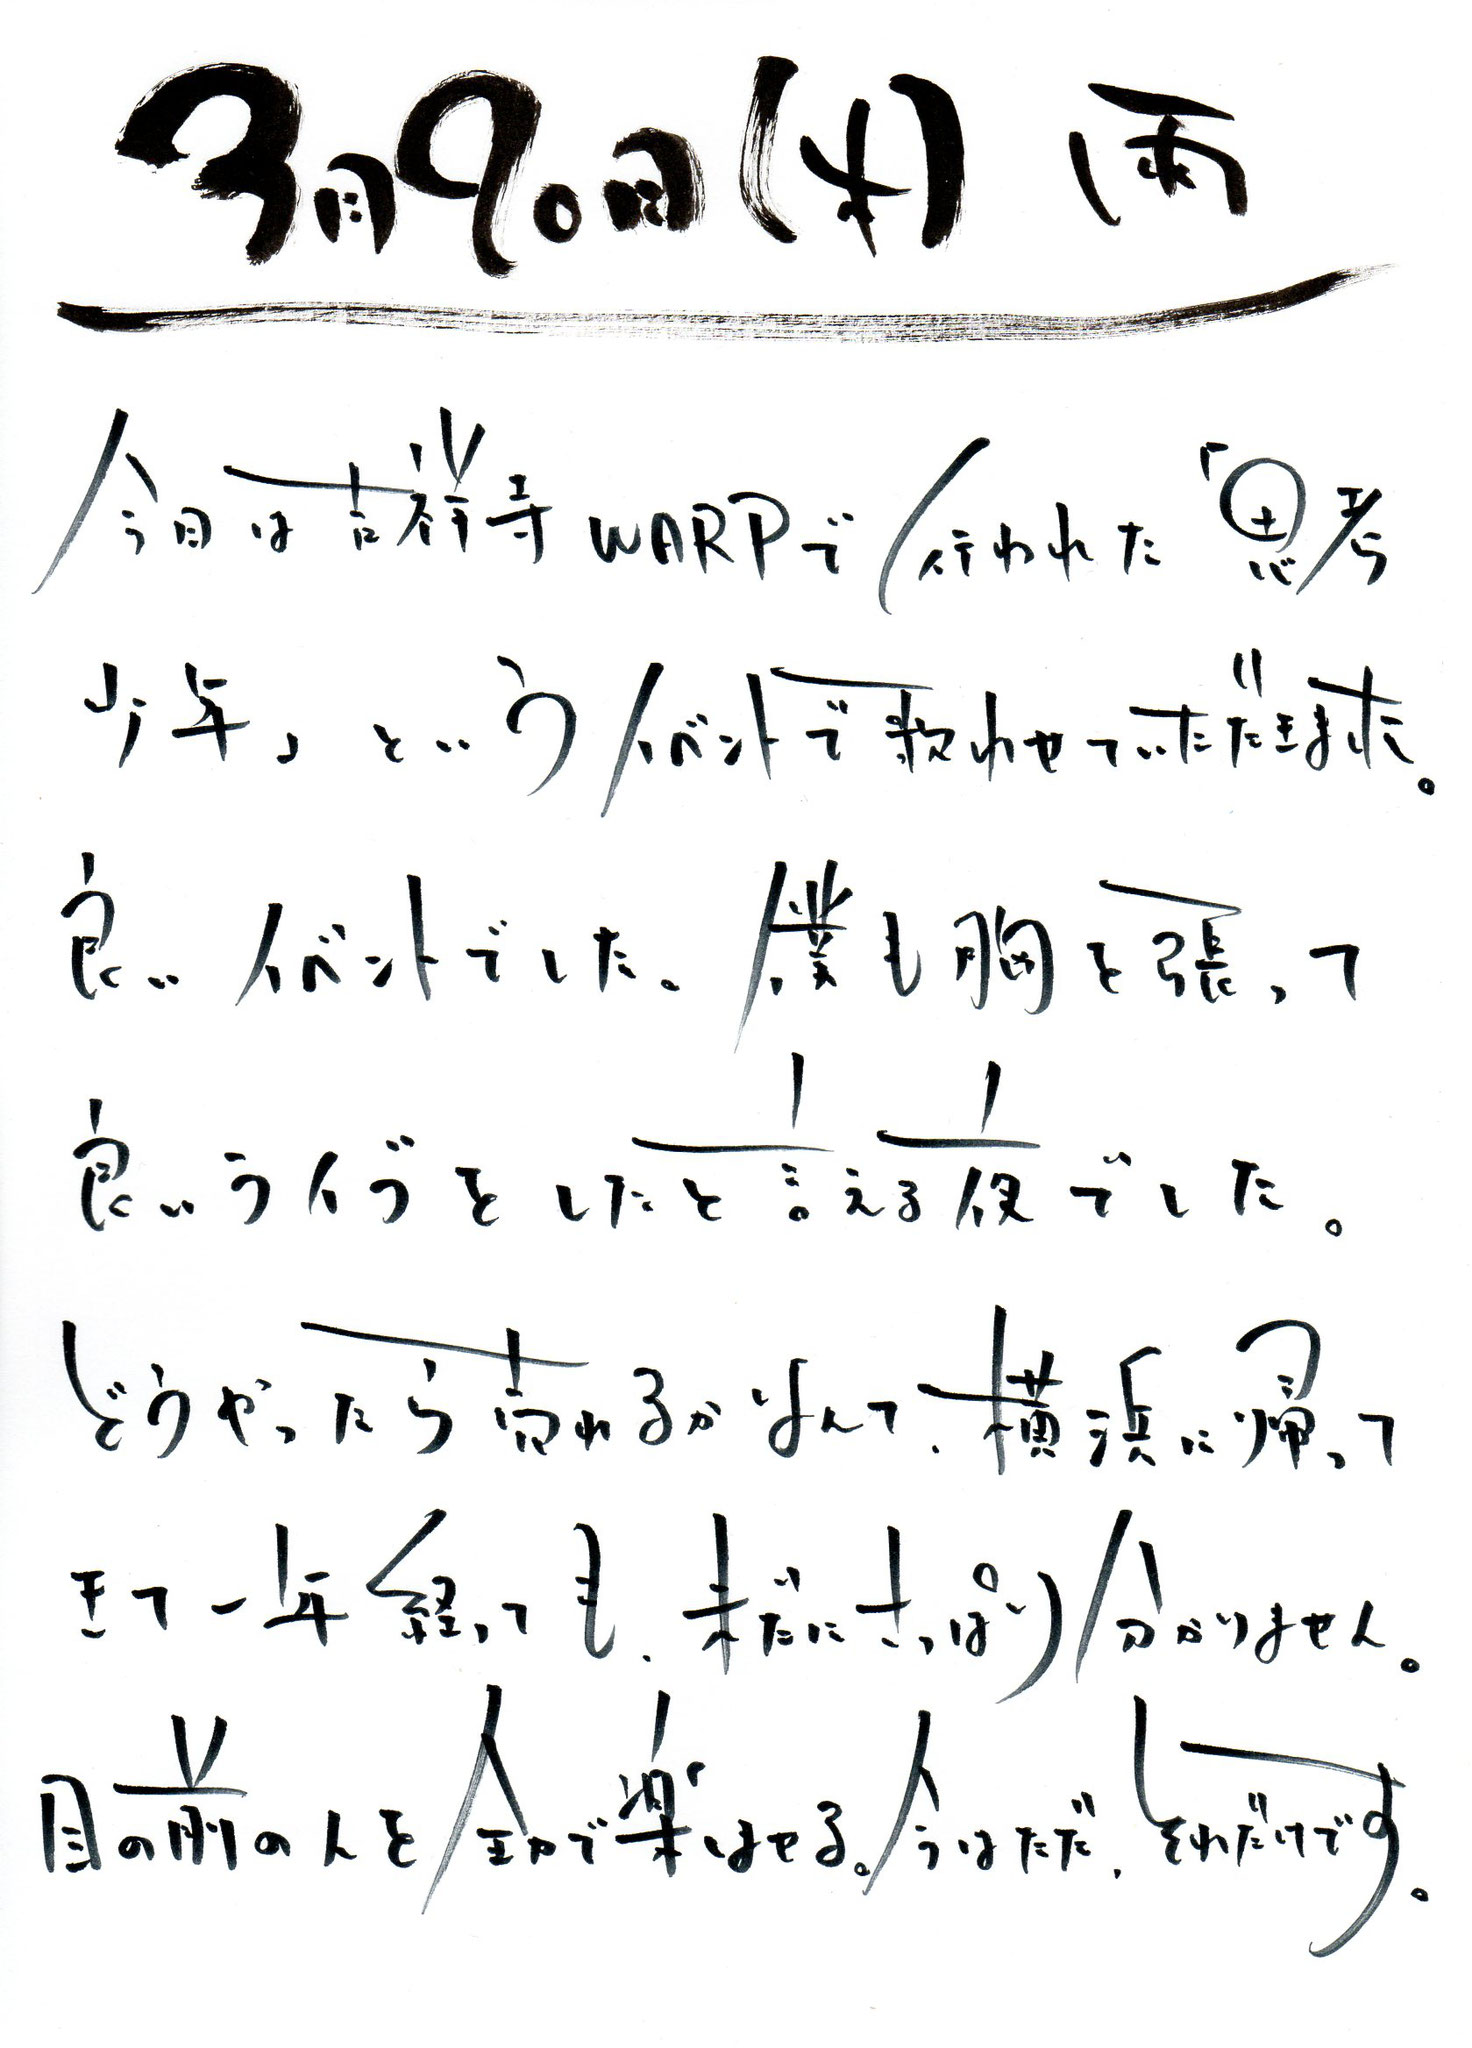 3月9日(水) 雨
今日は吉祥寺WARPで行われた「思考
少年」というイベントで歌わせていただきました。
良いイベントでした。僕も胸を張って
良いライブをしたと言える夜でした。
どうやったら売れるかなんて、横浜に帰って
きて一年経っても、未だにさっぱり分かりません。
目の前の人を全力で楽しませる。今はただ、それだけです。